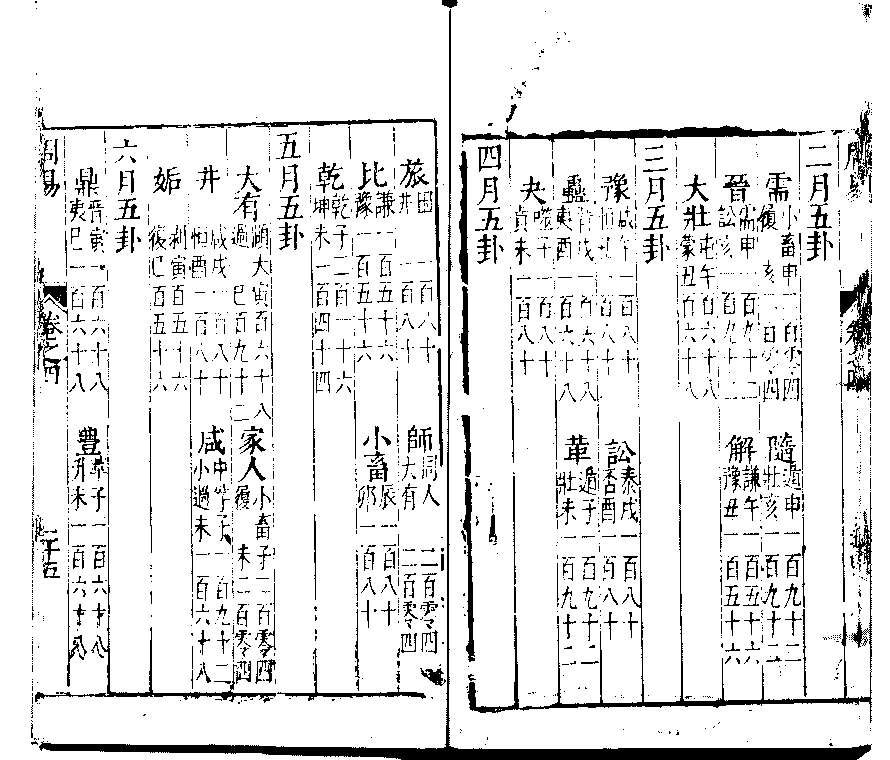 二月五卦
需 小畜申二百零四
履亥二百零四
隨 遁申一百九十二
壯亥一百九十二
晉 需申一百九十二
訟亥一百九十二
解 謙午一百五十六
豫丑一百五十六
大壯 屯午百六十八
蒙丑百六十八
三月五卦
豫 咸午一百八十
恒丑一百八十
訟 泰戌一百八十
否酉一百八十
蠱 晉戌一百六十八
夷酉一百六十八
革 遁子一百九十二
壯未一百九十二
夬 噬子一百八十
賁未一百八十
四月五卦
旅 困 一百八十
井 一百八十
師 同人 二百零四
大有 二百零四
比 謙一百五十六
豫一百五十六
小畜 辰一百八十
卯一百八十
乾 乾子二百一十六
坤未一百四十四
五月五卦
大有 頤大寅百六十八
過 巳百九十二
家人 小畜子二百零四
履 未二百零四
井 咸戌一百八十
恒酉一百八十
咸 中孚子一百九十二
小過未一百六十八
姤 剥寅百五十六
復巳百五十六
六月五卦
鼎 晉寅一百六十八
夷巳一百六十八
豐 萃子一百六十八
升未一百六十八
周易 卷之四 二十五